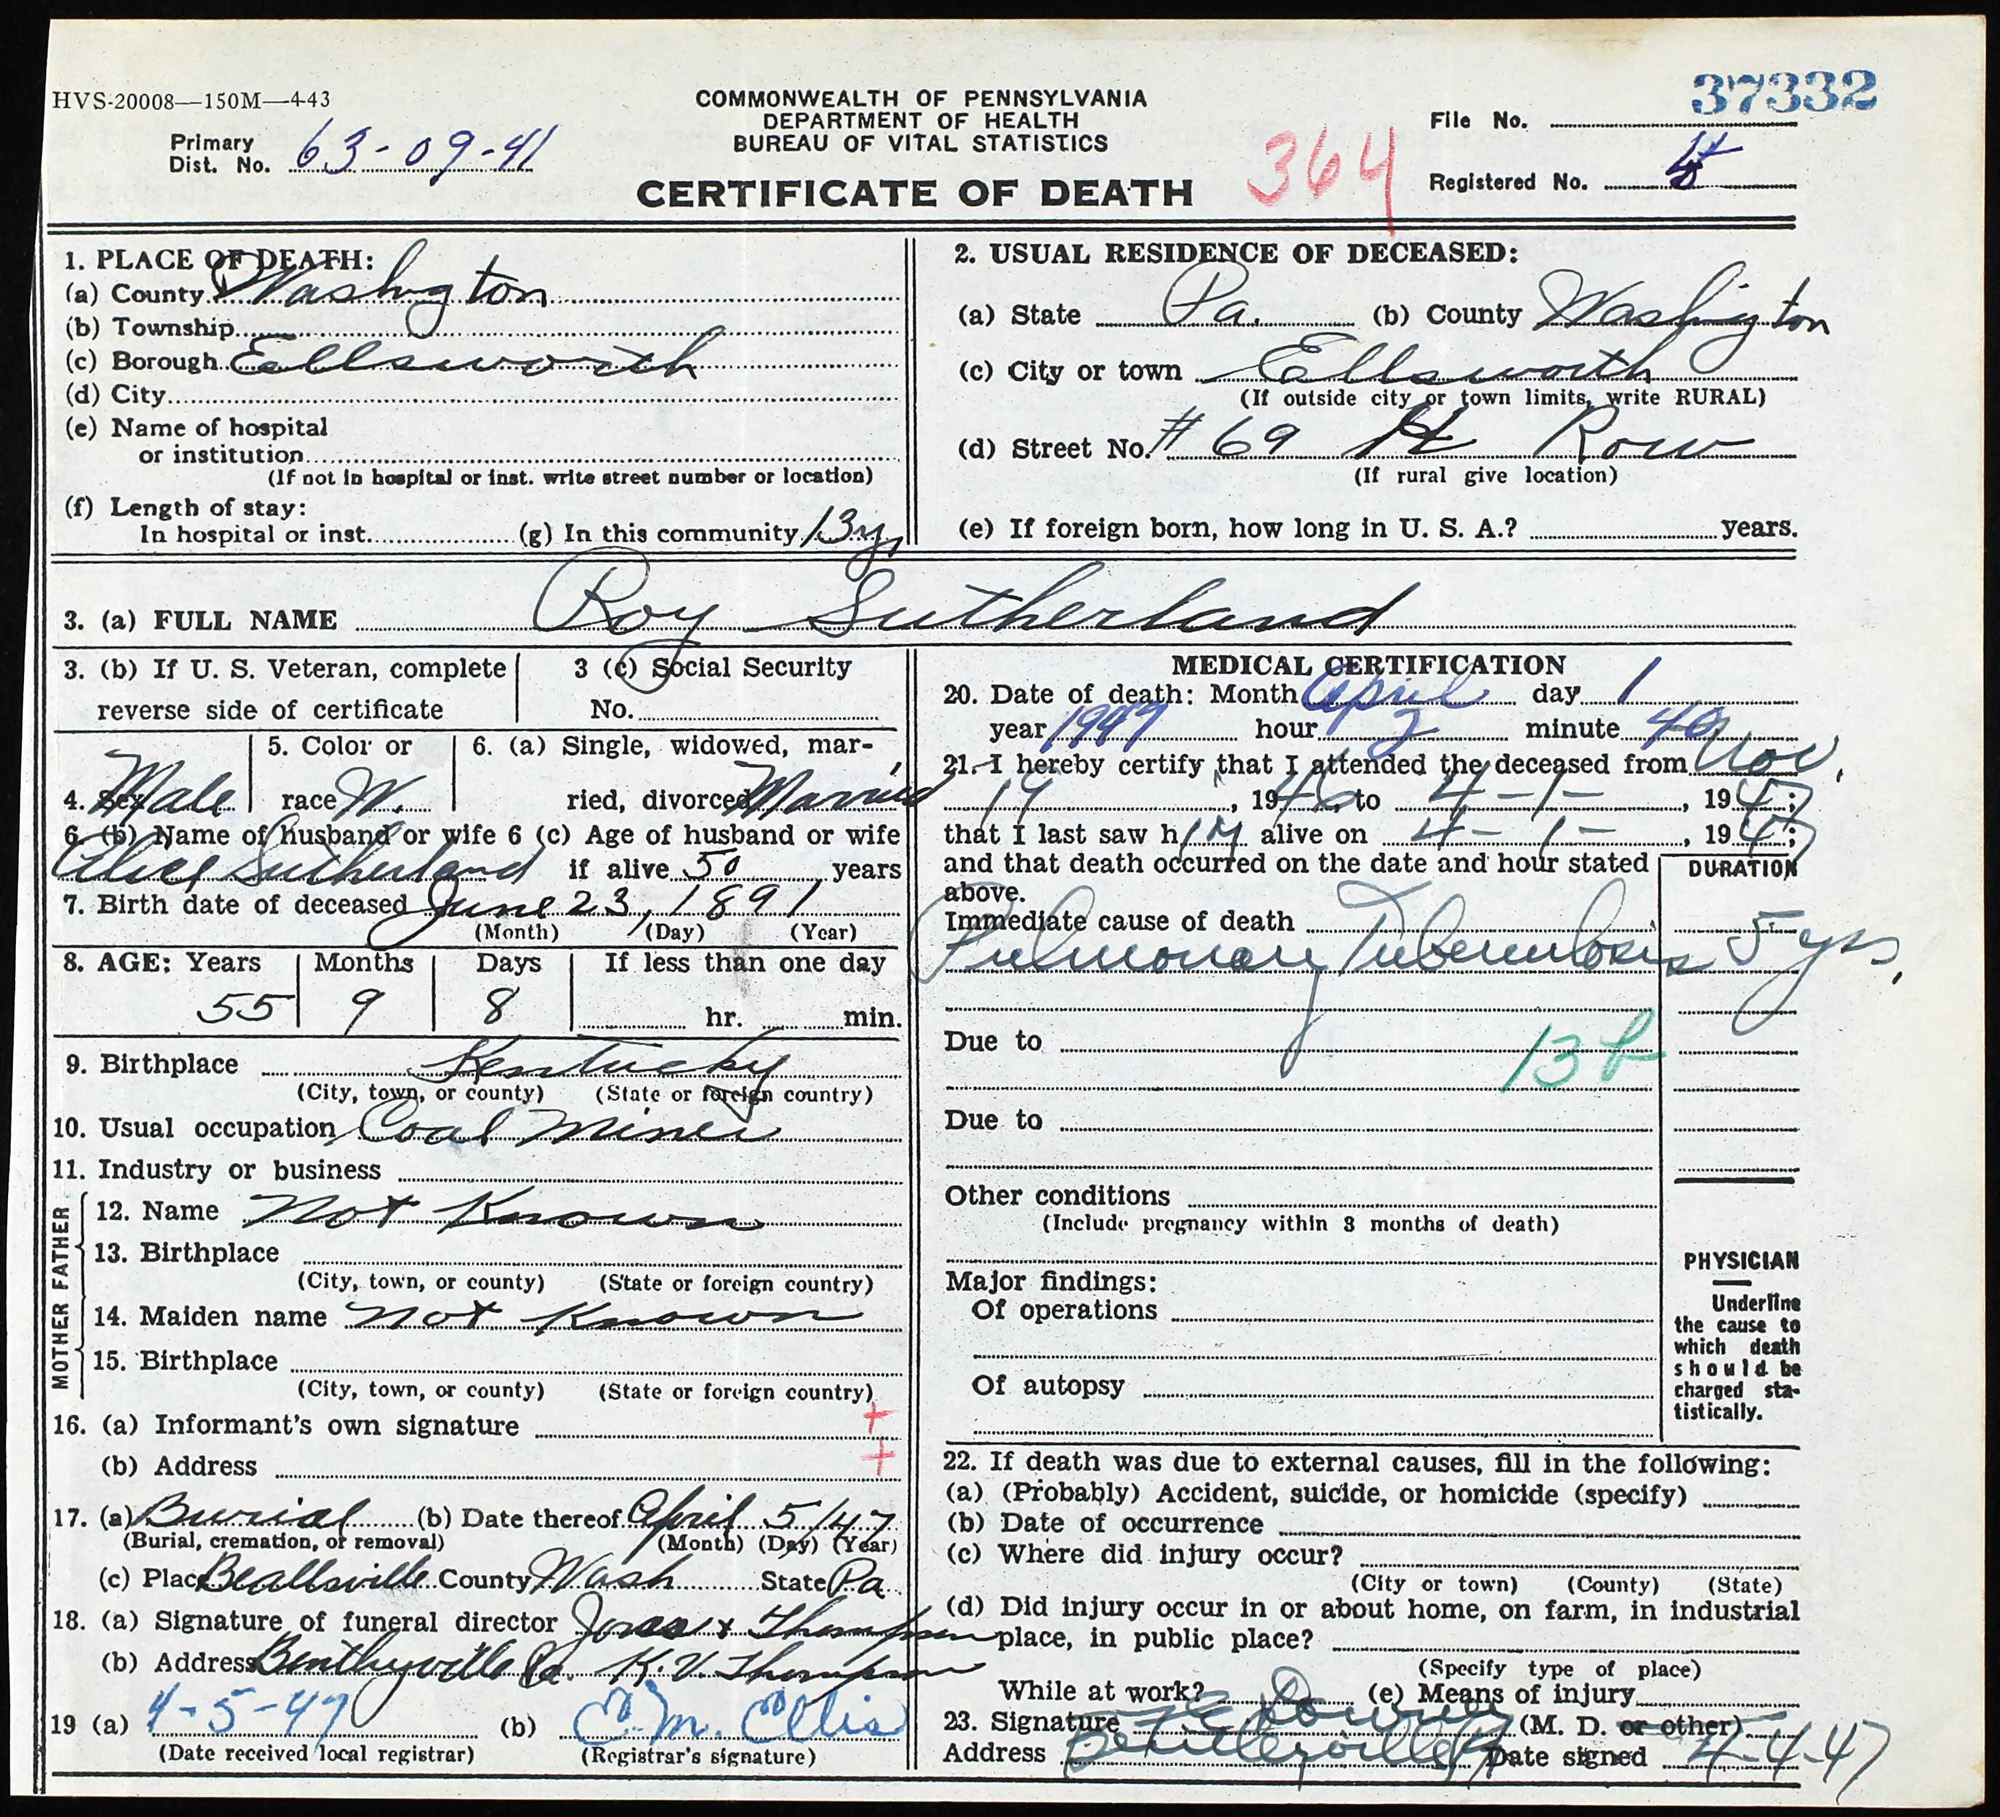 HVS-20008—150M—4-43
COMMONWEALTH OF PENNSYLVANIA
DEPARTMENT OF HEALTH
BUREAU OF VITAL STATISTICS
CERTIFICATE OF DEATH
364
37332
File No.
Primary
Dist. No. 63-09-41
Registered No.
1. PLACE OF DEATH:
(a) County Washington
(b) Township
(c) Borough Ellsworth
(d) City
(e) Name of hospital
or institution
(If not in hospital or inst. write street number or location)
(f) Length of stay:
In hospital or inst. (g) In this community 13 yrs
2. USUAL RESIDENCE OF DECEASED:
(a) State Pa. (b) County Washington
(c) City or town Ellsworth
(If outside city or town limits, write RURAL)
(d) Street No. # 69 Row
(If rural give location)
(e) If foreign born, how long in U. S. A.? years.
3. (a) FULL NAME Roy Sutherland
3. (b) If U. S. Veteran, complete
reverse side of certificate
3 (c) Social Security
No.
4. Sex Male
5. Color or
race W.
6. (a) Single, widowed, mar-
ried, divorced Married
6. (b) Name of husband or wife 6 (c) Age of husband or wife
Alice Sutherland if alive 50 years
7. Birth date of deceased June 23, 1891
(Month) (Day) (Year)
8. AGE: Years Months Days If less than one day
55 9 8 hr. min.
9. Birthplace Kentucky
(City, town, or county) (State or foreign country)
10. Usual occupation Coal Miner
11. Industry or business
FATHER
12. Name Not Known
13. Birthplace
(City, town, or county) (State or foreign country)
MOTHER
14. Maiden name Not Known
15. Birthplace
(City, town, or county) (State or foreign country)
16. (a) Informant's own signature +
(b) Address +
17. (a) Burial (b) Date thereof April 5/47
(Burial, cremation, or removal) (Month) (Day) (Year)
(c) Place Beallsville County Wash State Pa
18. (a) Signature of funeral director Jones & Thompson
(b) Address Bentleyville Pa. K. V. Thompson
19 (a) 4-5-47 (b) E. M. Ellis
(Date received local registrar) (Registrar's signature)
MEDICAL CERTIFICATION
20. Date of death: Month April day 1
year 1947 hour 2 minute 40
21. I hereby certify that I attended the deceased from Nov,
19, 1946, to 4-1-, 1947;
that I last saw him alive on 4-1-, 1947;
and that death occurred on the date and hour stated
above.
DURATION
Immediate cause of death
Pulmonary Tuberculosis 5 yrs.
Due to
13
Due to
Other conditions
(Include pregnancy within 3 months of death)
Major findings:
Of operations
Of autopsy
PHYSICIAN
Underline
the cause to
which death
should be
charged sta-
tistically.
22. If death was due to external causes, fill in the following:
(a) (Probably) Accident, suicide, or homicide (specify)
(b) Date of occurrence
(c) Where did injury occur?
(City or town) (County) (State)
(d) Did injury occur in or about home, on farm, in industrial
place, in public place?
(Specify type of place)
While at work? (e) Means of injury
23. Signature (M. D. or other)
Address Bentleyville Pa Date signed 4-4-47